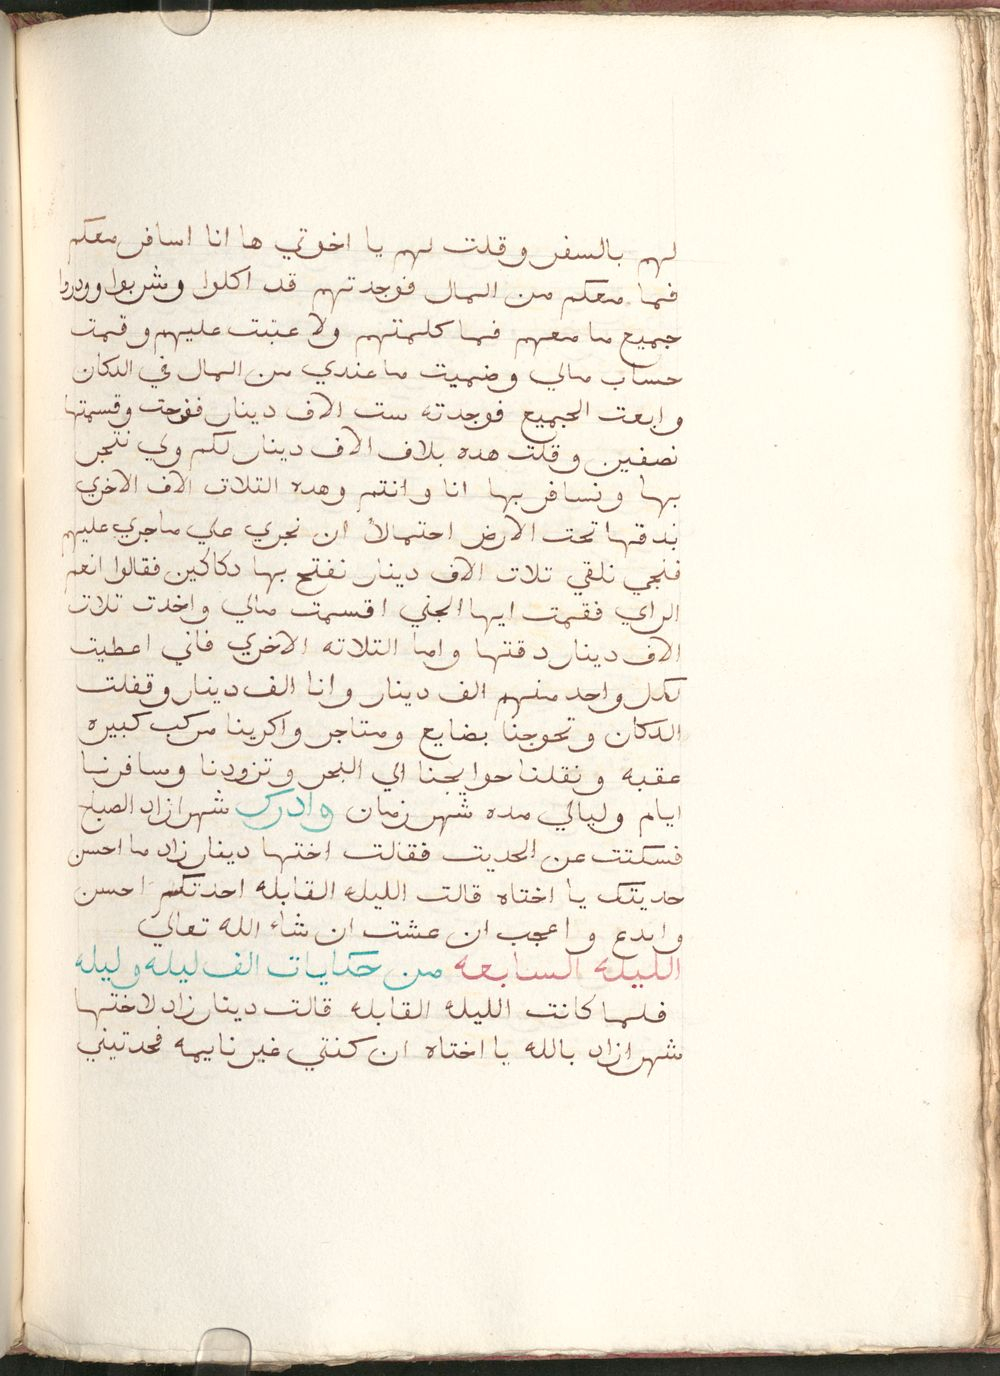 لهم بالسفر وقلت لهم يا اخوتي ها انا اسافر معكم
فما معكم من المال فوجدتهم قد اكلوا وشربوا وودروا
جميع ما معهم فما كلمتهم ولا عتبت عليهم وقمت
حساب مالي وضميت ما عندي من المال في الدكان
وابعت الجميع فوجدته ست الاف دينار ففرحت وقسمتها
نصفين وقلت هده بلاف الاف دينار لكم ولي نتجر
بها ونسافر بها انا وانتم وهده التلات الاف الاخري
ندفنها تحت الارض احتمالاً ان نجري علي ما جري عليهم
فنجي نلقي تلات الاف دينار نفتح بها دكاكين فقالوا انعم
الراي فقمت ايها الجني اقسمت مالي واخدت تلات
الاف دينار دفنتها واما التلاته الاخري فاني اعطيت
لكل واحد منهم الف دينار وانا الف دينار وقفلت
الدكان وتحوجنا بضايع ومتاجر واكرينا مركب كبيره
عقبه ونقلنا حوايجنا الي البحر وتزودنا وسافرنا
ايام وليالي مده شهر زمان وادرك شهرازاد الصباح
فسكتت عن الحديت فقالت اختها دينارزاد ما احسن
حديتك يا اختاه قالت الليله القابله احدتكم احسن
وابدع واعجب ان عشت ان شاء الله تعالي
الليله السابعه من حكايات الف ليله وليله
فلما كانت الليله القابله قالت دينارزاد لاختها
شهرازاد بالله يا اختاه ان كنتي غير نايمه فحدتيني